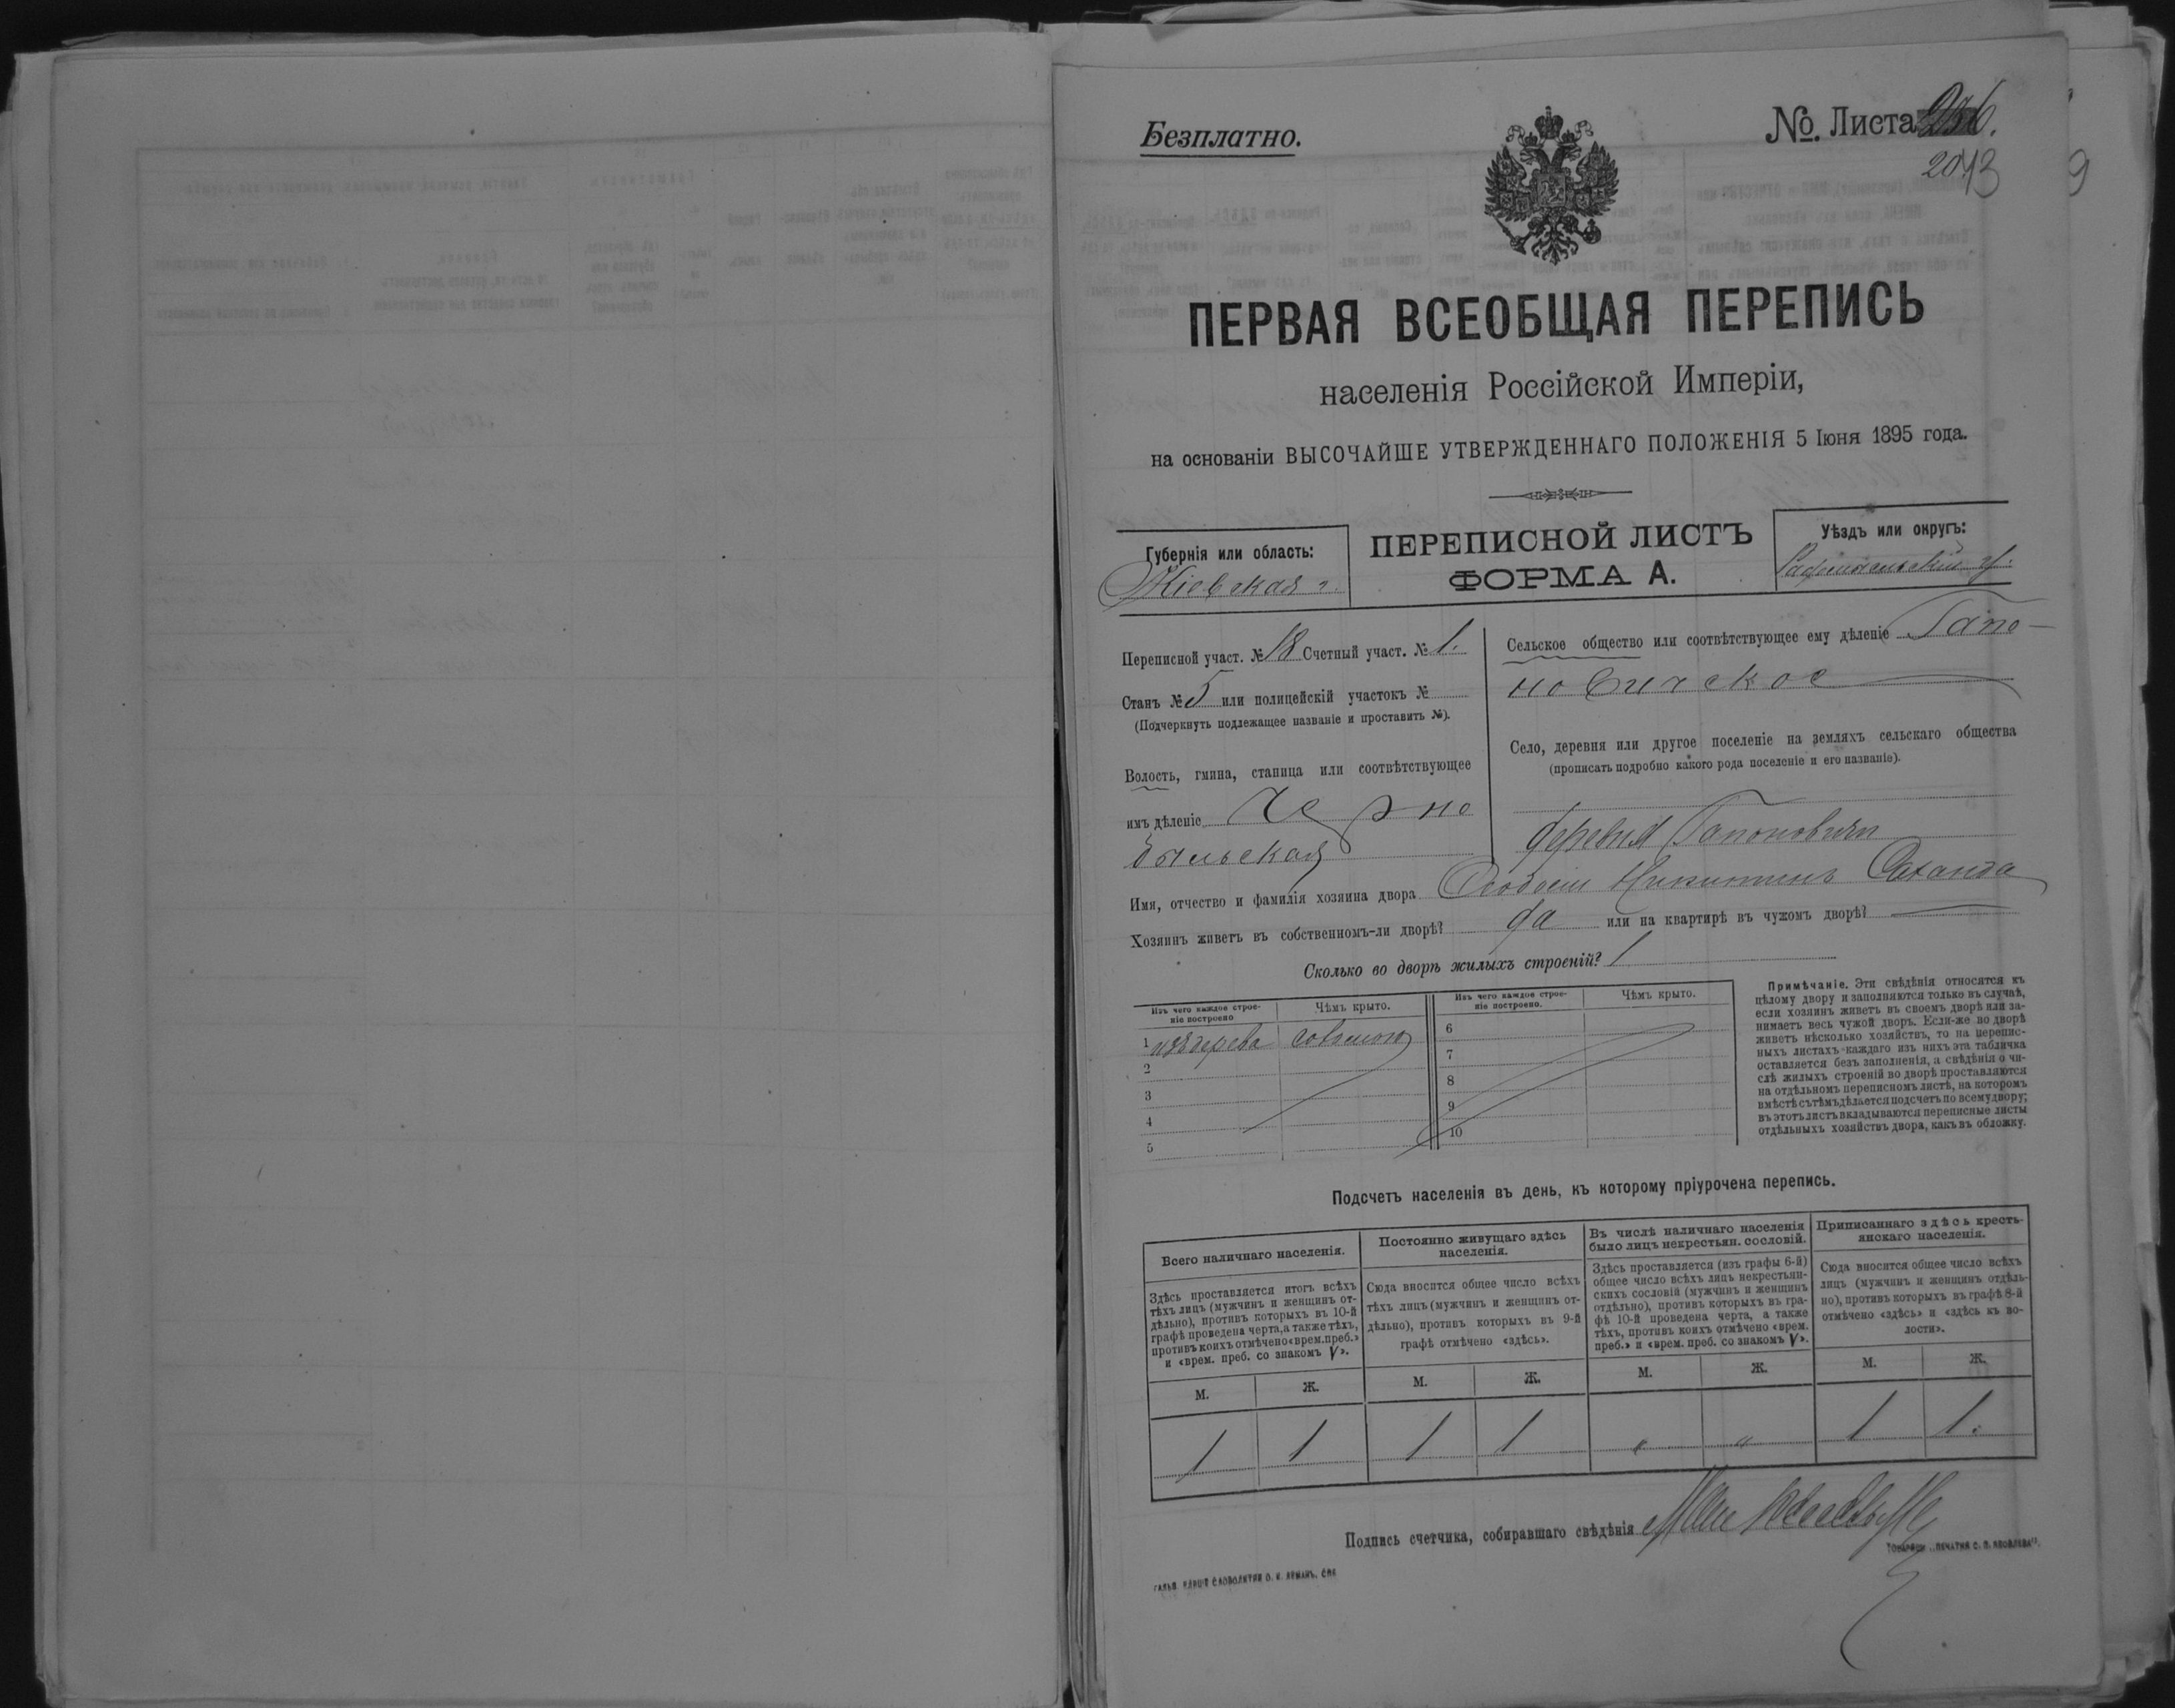 Безплатно.
№. Листа
ПЕРВАЯ ВСЕОБЩАЯ ПЕРЕПИСЬ
населенія Россійской Имперіи,
на основаніи ВЫСОЧАЙШЕ УТВЕРЖДЕННАГО ПОЛОЖЕНІЯ 5 Іюня 1895 года.
Губернія или область:
Кіевская г.
ПЕРЕПИСНОЙ ЛИСТЪ
ФОРМА А.
Уѣздъ или округъ:
Радомысльскій у.
Переписной участ. № 18 Счетный участ. № 1.
Станъ № 5 или полицейскій участокъ №
(Подчеркнуть подлежащее названіе и проставить №).
Волость, гмина, станица или соотвѣтствующее
имъ дѣленіе Черно
быльская
Сельское общество или соотвѣтствующее ему дѣленіе Гапо-
новичское
Село, деревня или другое поселеніе на земляхъ сельскаго общества
(прописать подробно какого рода поселеніе и его названіе).
деревня Гапоновичи
Имя, отчество и фамилія хозяина двора Никитинъ
Хозяинъ живетъ въ собственномъ-ли дворѣ? да или на квартирѣ въ чужомъ дворѣ?
Сколько во дворѣ жилыхъ строеній? 1
Изъ чего каждое строе-
ніе построено
Чѣмъ крыто.
Изъ чего каждое строе-
ніе построено.
Чѣмъ крыто.
1 изъ дерева соломою
2
3
4
5
6
7
8
9
10
Примѣчаніе. Эти свѣдѣнія относятся къ
цѣлому двору и заполняются только въ случаѣ,
если хозяинъ живетъ въ своемъ дворѣ или за-
нимаетъ весь чужой дворъ. Если-же во дворѣ
живетъ нѣсколько хозяйствъ, то на перепис-
ныхъ листахъ каждаго изъ нихъ эта табличка
оставляется безъ заполненія, а свѣдѣнія о чи-
слѣ жилыхъ строеній во дворѣ проставляются
на отдѣльномъ переписномъ листѣ, на которомъ
вмѣстѣ съ тѣмъ дѣлается подсчетъ по всему двору;
въ этотъ листъ вкладываются переписные листы
отдѣльныхъ хозяйствъ двора, какъ въ обложку.
Подсчетъ населенія въ день, къ которому пріурочена перепись.
Всего наличнаго населенія.
Здѣсь проставляется итогъ всѣхъ
тѣхъ лицъ (мужчинъ и женщинъ от-
дѣльно), противъ которыхъ въ 10-й
графѣ проведена черта, а также тѣхъ,
противъ коихъ отмѣчено «врем. преб.»
и «врем. преб. со знакомъ V».
Постоянно живущаго здѣсь
населенія.
Сюда вносится общее число всѣхъ
тѣхъ лицъ (мужчинъ и женщинъ от-
дѣльно), противъ которыхъ въ 9-й
графѣ отмѣчено «здѣсь».
Въ числѣ наличнаго населенія
было лицъ некрестьян. сословій.
Здѣсь проставляется (изъ графы 6-й)
общее число всѣхъ лицъ некрестьян-
скихъ сословій (мужчинъ и женщинъ
отдѣльно), противъ которыхъ въ гра-
фѣ 10-й проведена черта, а также
тѣхъ, противъ коихъ отмѣчено «врем.
преб.» и «врем. преб. со знакомъ V».
Приписаннаго здѣсь кресть-
янскаго населенія.
Сюда вносится общее число всѣхъ
лицъ (мужчинъ и женщинъ отдѣль-
но), противъ которыхъ въ графѣ 8-й
отмѣчено «здѣсь» и «здѣсь въ во-
лости».
М. Ж. М. Ж. М. Ж. М. Ж.
1 1 1 1 „ „ 1 1.
Подпись счетчика, собиравшаго свѣдѣнія